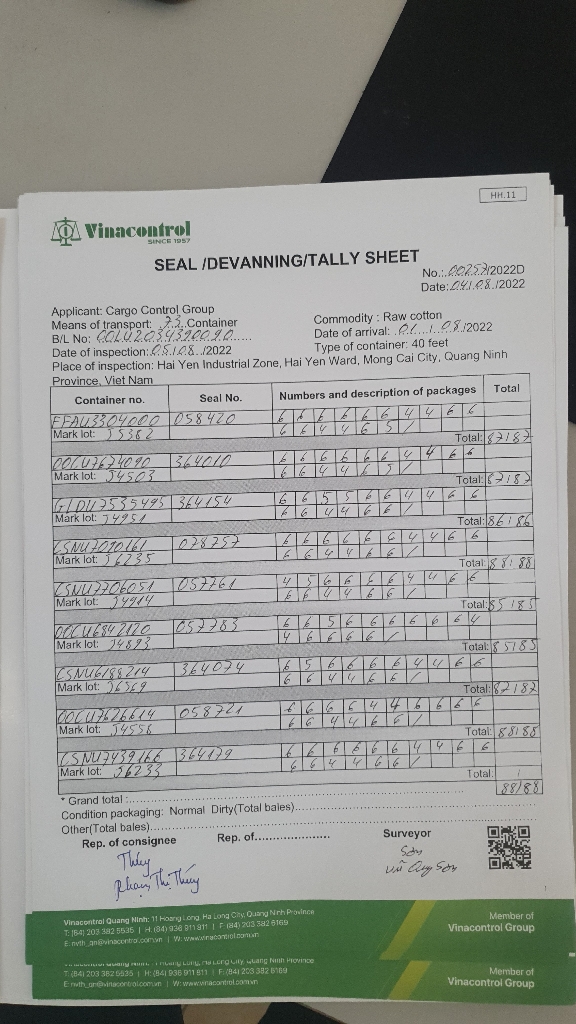 HH.11
Vinacontrol
SINCE 1957
SEAL /DEVANNING/TALLY SHEET
No.: 00257/2022D
Date: 04/08/2022
Applicant: Cargo Control Group
Means of transport: 73 Container
Commodity : Raw cotton
B/L No: OOLU2034390090
Date of arrival: 01/08/2022
Date of inspection: 05/08/2022
Type of container: 40 feet
Place of inspection: Hai Yen Industrial Zone, Hai Yen Ward, Mong Cai City, Quang Ninh
Province, Viet Nam
Container no. Seal No. Numbers and description of packages Total
FFAU3304000 058420 6 6 6 6 6 6 4 4 6 6
Mark lot: J5362 6 6 4 4 6 5 /
Total: 87/87
OOCU7674090 364010 6 6 6 6 6 6 4 4 6 6
Mark lot: J4503 6 6 4 4 6 5 /
Total: 87/87
364154 6 6 5 5 6 6 4 4 6 6
Mark lot: J4951 6 6 4 4 6 6 /
Total: 86/86
CSNU7090161 078757 6 6 6 6 6 6 4 4 6 6
Mark lot: J6235 6 6 4 4 6 6 /
Total: 88/88
CSNU7706051 057761 4 5 6 6 6 6 4 4 6 6
Mark lot: J4914 6 6 4 4 6 6 /
Total: 85/85
OOCU6842120 057783 6 6 5 6 6 6 6 6 6 4
Mark lot: J4893 4 6 6 6 6 /
Total: 85/85
CSNU6188214 364074 6 5 6 6 6 6 4 4 6 6
Mark lot: J6369 6 6 4 4 6 6 /
Total: 87/87
OOCU7626614 058721 6 6 6 6 4 4 6 6 6 6
Mark lot: J4558 6 6 4 4 6 6 /
Total: 88/88
CSNU7439166 364179 6 6 6 6 6 6 4 4 6 6
Mark lot: J6233 6 6 4 4 6 6 /
Total:
88/88
* Grand total :
Condition packaging: Normal Dirty(Total bales)
Other(Total bales)
Rep. of consignee Rep. of Surveyor
Thúy Sơn
Phạm Thị Thúy
Vinacontrol Quang Ninh: 11 Hoang Long, Ha Long City, Quang Ninh Province
T: (84) 203 382 5535 | H: (84) 936 911 811 | F: (84) 203 382 6169
E: nvth_qn@vinacontrol.com.vn | W: www.vinacontrol.com.vn
Member of
Vinacontrol Group
T: (84) 203 382 5535 | H: (84) 936 911 811 | F: (84) 203 382 6169
E: nvth_qn@vinacontrol.com.vn | W: www.vinacontrol.com.vn
Member of
Vinacontrol Group